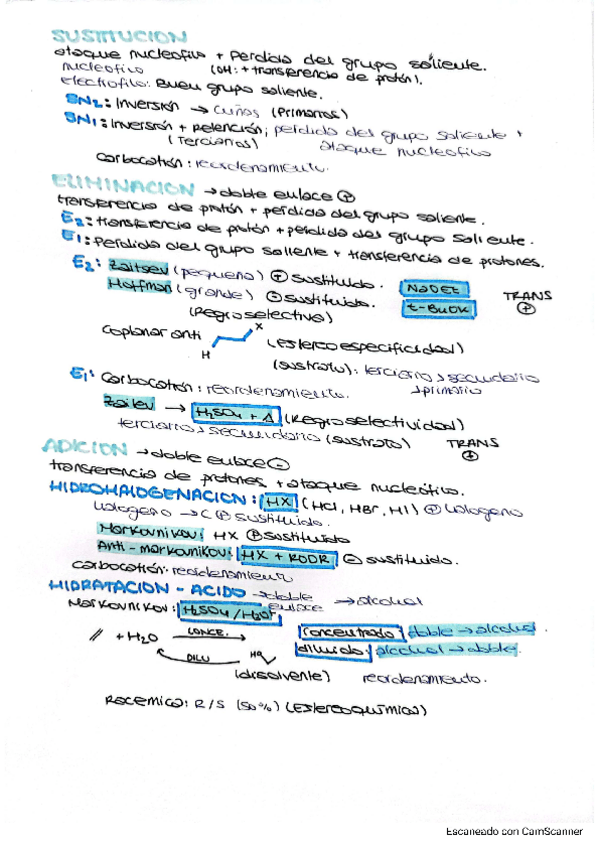 SUSTITUCION
ataque nucleofilo + Perdida del grupo saliente.
nucleofilo (OH: + transferencia de protón).
electrofilo: Buen grupo saliente.
SN2: Inversión → cuñas (Primarios)
SN1: Inversión + Retención; perdida del grupo saliente +
(Terciarios) ataque nucleofilo
Carbocatión: reordenamiento.
ELIMINACION → doble enlace ⊕
transferencia de protón + pérdida del grupo saliente.
E2: transferencia de protón + perdida del grupo saliente.
E1: Perdida del grupo saliente + transferencia de protones.
E2: Zaitsev (pequeño) ⊕ sustituido. NaOEt
Hoffman (grande) ⊖ sustituido. t-BuOK TRANS ⊕
(Regroselectiva)
Coplanar anti H X (estereoespecificidad)
(sustrato): terciario > secundario > primario
E1: Carbocatión: reordenamiento.
Zaitev → H2SO4 + Δ (Regroselectividad)
terciario > secundario (sustrato) TRANS ⊕
ADICION → doble enlace ⊖
transferencia de protones + ataque nucleófilo.
HIDROHALOGENACION: HX (HCl, HBr, HI) ⊕ halogeno
halogeno → C ⊕ sustituido.
Markovnikov: HX ⊕ sustituido
Anti-markovnikov: HX + ROOR ⊖ sustituido.
Carbocatión: reordenamiento
HIDRATACION - ACIDO → doble enlace → alcohol
Markovnikov: H2SO4/H2O
// + H2O CONCE. Concentrado: doble → alcohol.
DILU HO diluido: alcohol → doble.
(disolvente) reordenamiento.
Racemico: R/S (50%) (Estereoquímica)
Escaneado con CamScanner